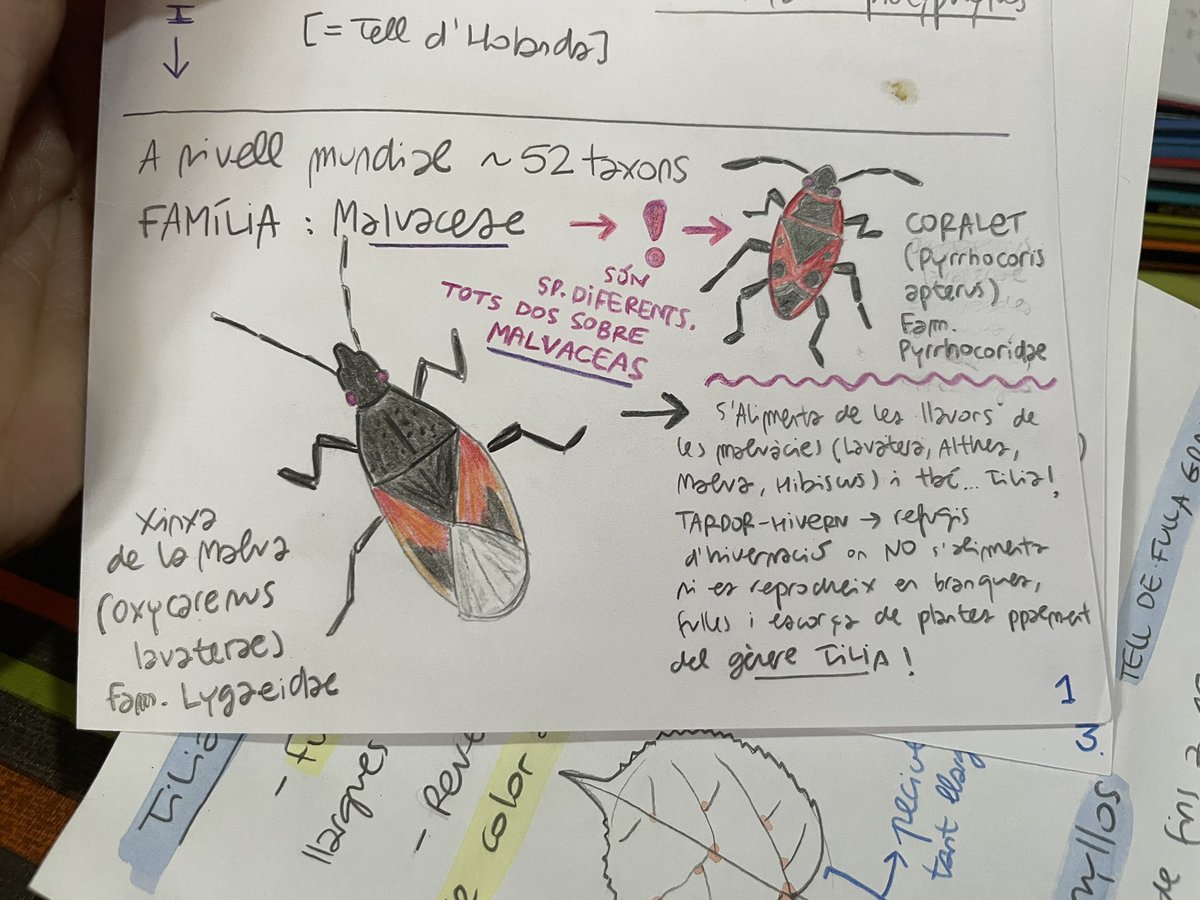 I
[= Tell d'Holanda]
A nivell mundial ~ 52 taxons
FAMÍLIA : Malvaceae → ! →
SÓN
SP. DIFERENTS.
TOTS DOS SOBRE
MALVACEAS
CORALET
(Pyrrhocoris
apterus)
Fam.
Pyrrhocoridae
→ S'Alimenta de les llavors de
les malvàcies (Lavatera, Althea,
Malva, Hibiscus) i tbé... Tilia!
TARDOR-HIVERN → refugis
d'hivernació on NO s'alimenta
ni es reprodueix en branques,
fulles i escorça de plantes ppalment
del gènere TILIA!
Xinxa
de la Malva
(oxycarenus
lavaterae)
Fam. Lygaeidae
1
3
TELL DE FULLA GRAN
Tilia
llargues
color
tant
yllos
de fins a